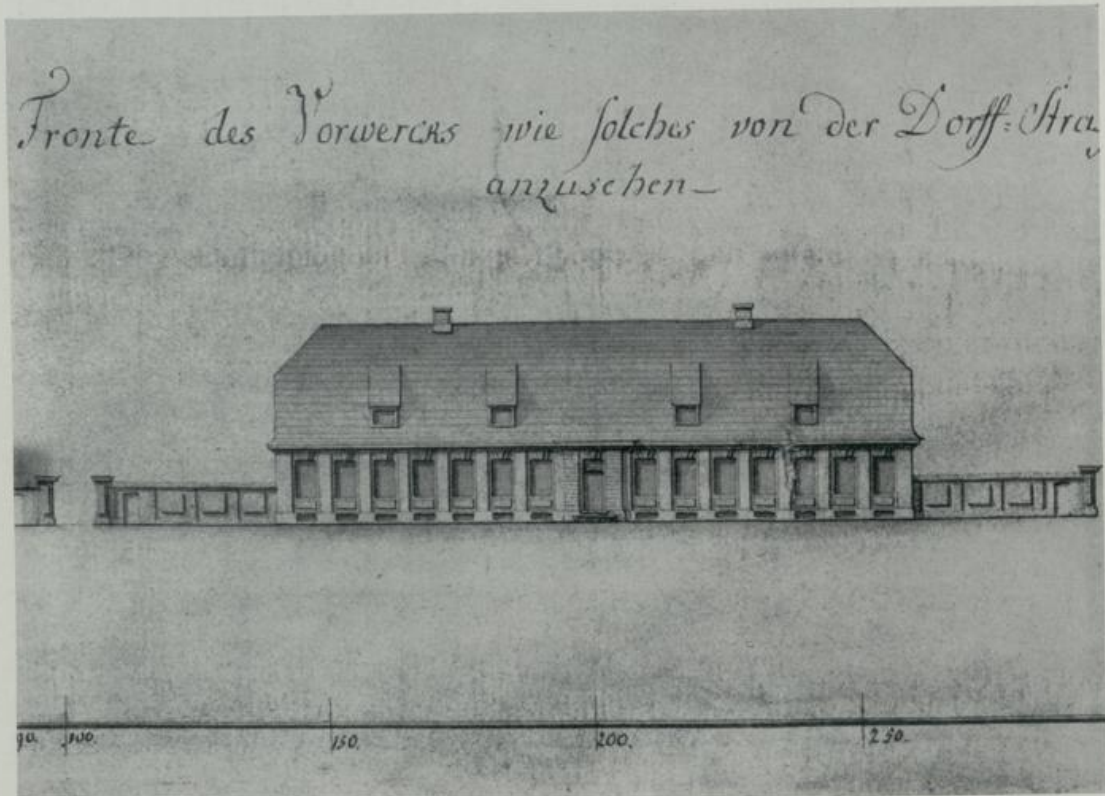 Fronte des Vorwercks wie solches von der Dorff=Stra
anzusehen
90. 100. 150. 200. 250.